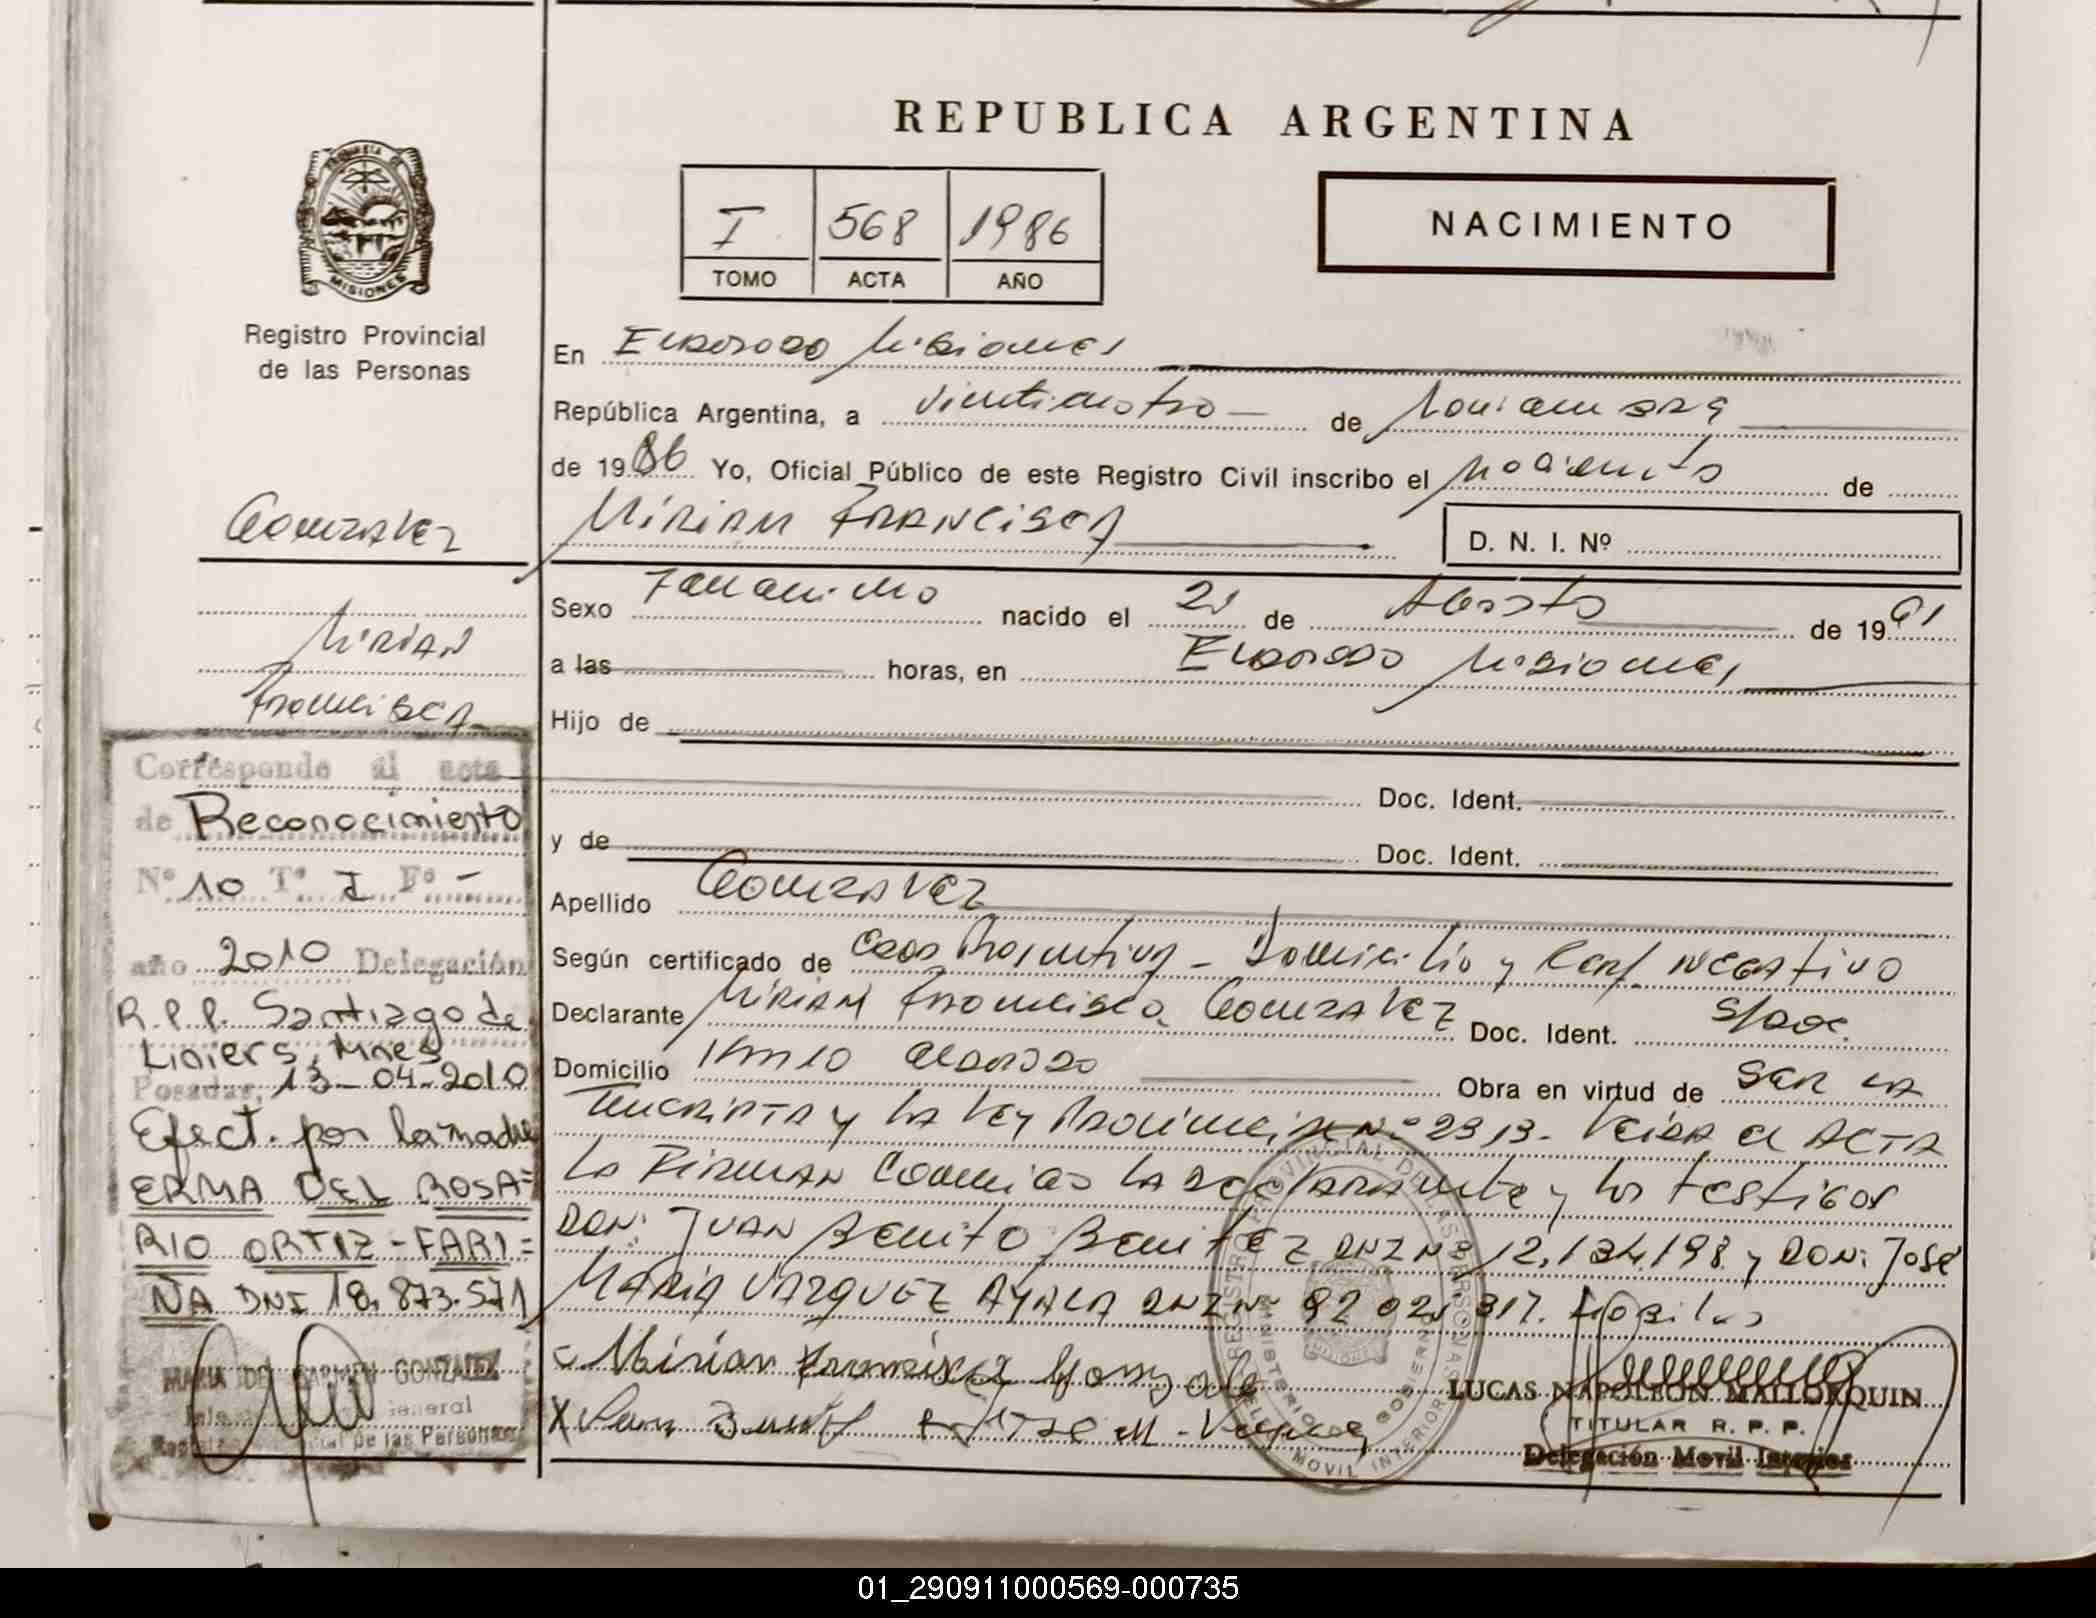 REPUBLICA ARGENTINA
PROVINCIA DE
MISIONES
I 568 1986
TOMO ACTA AÑO
NACIMIENTO
Registro Provincial
de las Personas
En Eldorado Misiones
República Argentina, a Veinticuatro de Noviembre
de 19 86 Yo, Oficial Público de este Registro Civil inscribo el Nacimiento de
Mirian Francisca
D. N. I. Nº
Sexo Femenino nacido el 21 de Agosto de 19 61
a las horas, en Eldorado Misiones
Hijo de
Doc. Ident.
y de Doc. Ident.
Apellido Gonzalez
Según certificado de Edad Presuntiva - Domicilio y Conf. negativo
Declarante Mirian Francisca Gonzalez Doc. Ident. S/doc.
Domicilio Km 10 eldorado Obra en virtud de Ser la
Inscripta y la Ley Provincial Nº 2313. Leida el ACTA
la Firman Conmigo la declarante y los testigos
DON: JUAN Benito Benitez DNI Nº 12.134.198 y DON: José
MARIA VAZQUEZ AYALA DNI Nº 92 021 317. Habiles
Mirian Francisca Gonzale
X
LUCAS NAPOLEON MALLORQUIN
TITULAR R. P. P.
Delegación Movil Interior
REGISTRO PROVINCIAL DE LAS PERSONAS
MINISTERIO DE GOBIERNO
MOVIL INTERIOR
Gonzalez
Mirian
Francisca
Corresponde al acta
de Reconocimiento
Nº 10 Tº I Fº -
año 2010 Delegación
R.P.P. Santiago de
Liniers, Mnes
Posadas, 13-04-2010
Efect. por la madre
ERMA DEL ROSA=
RIO ORTIZ - FARI=
ÑA DNI 18.873.571
MARIA DEL CARMEN GONZALEZ
General
de las Personas
01_290911000569-000735